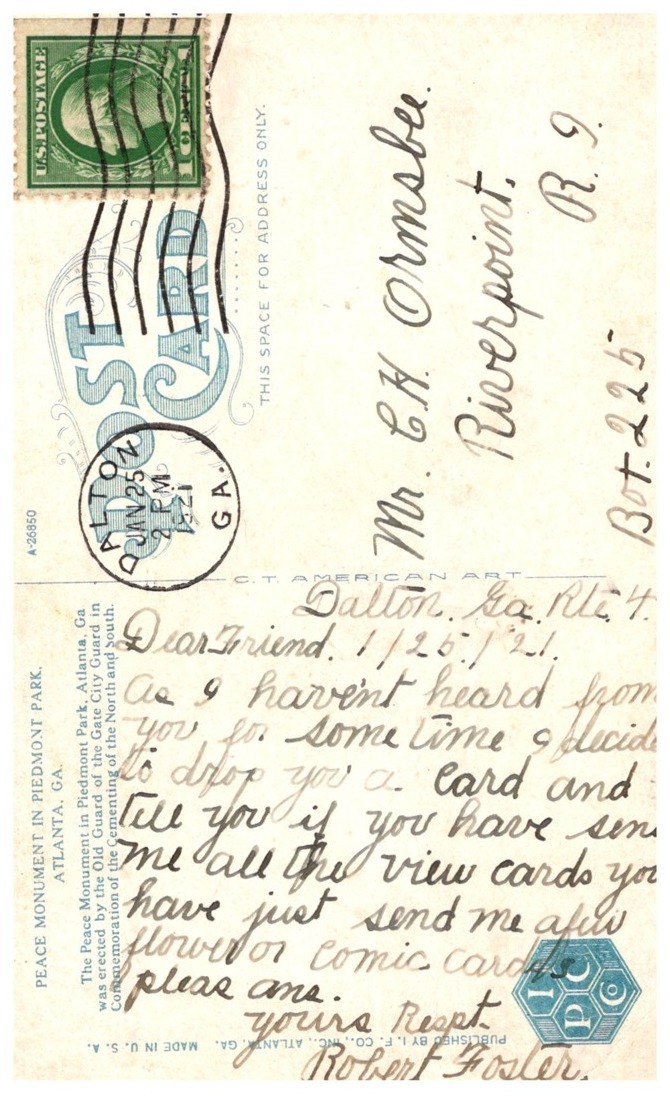 U.S. POSTAGE
1 CENT 1
POST
CARD
THIS SPACE FOR ADDRESS ONLY.
DALTON
JAN 25
2 PM
1921
GA.
A-26850
Mr. C.H. Ormsbee.
Riverpoint.
R. 9.
Box. 225
C.T. AMERICAN ART
PEACE MONUMENT IN PIEDMONT PARK,
ATLANTA, GA.
The Peace Monument in Piedmont Park, Atlanta, Ga
was erected by the Old Guard of the Gate City Guard in
Commemoration of the Cementing of the North and South.
Dalton. Ga. Rte. 4.
Dear Friend. 1/25/21.
As I haven't heard from
you for some time I decide
to drop you a card and
tell you if you have sen
me all the view cards you
have just send me afew
flower or comic cards
pleas ans.
yours Respt.
Robert Foster.
PUBLISHED BY I. F. CO., INC., ATLANTA, GA. MADE IN U. S. A.
I
P C
C